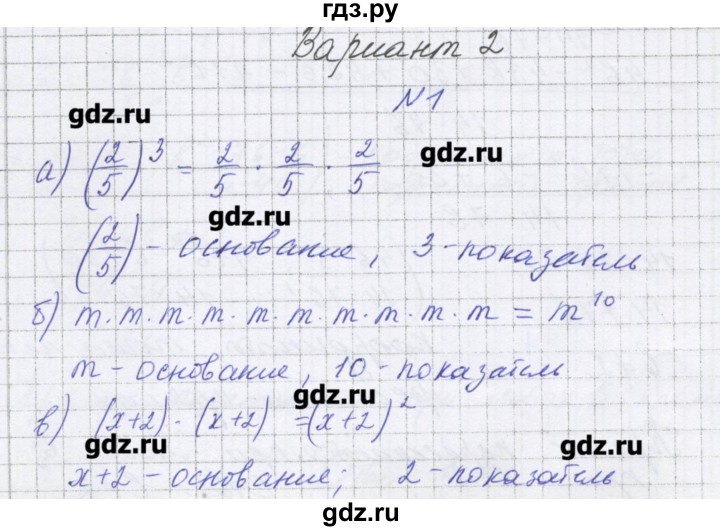 гдз.ру
Вариант 2
№1
gdz.ru
а) (2/5)^3 = 2/5 · 2/5 · 2/5
gdz.ru
gdz.ru
(2/5) - основание, 3-показатель
б) m·m·m·m·m·m·m·m·m·m = m^10
m - основание, 10-показатель
gdz.ru
в) (x+2)·(x+2) =(x+2)^2
gdz.ru
gdz.ru
x+2 - основание; 2-показатель
gdz.ru